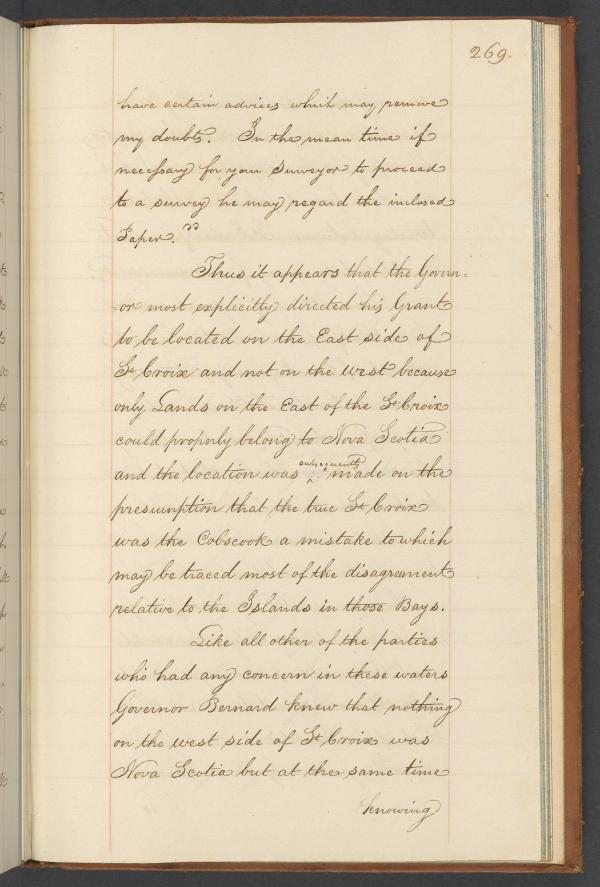 269.
have certain advices which may remove
my doubts. In the mean time if
necessary for your Surveyor to proceed
to a survey he may regard the inclosed
Paper."
Thus it appears that the Govern=
-or most explicitly directed his Grant
to be located on the East side of
St Croix and not on the west because
only Lands on the East of the St Croix
could properly belong to Nova Scotia
and the location was subsequently made on the
presumption that the true St Croix
was the Cobscook a mistake to which
may be traced most of the disagreement
relative to the Islands in those Bays.
Like all other of the parties
who had any concern in these waters
Governor Bernard knew that nothing
on the west side of St Croix was
Nova Scotia but at the same time
knowing